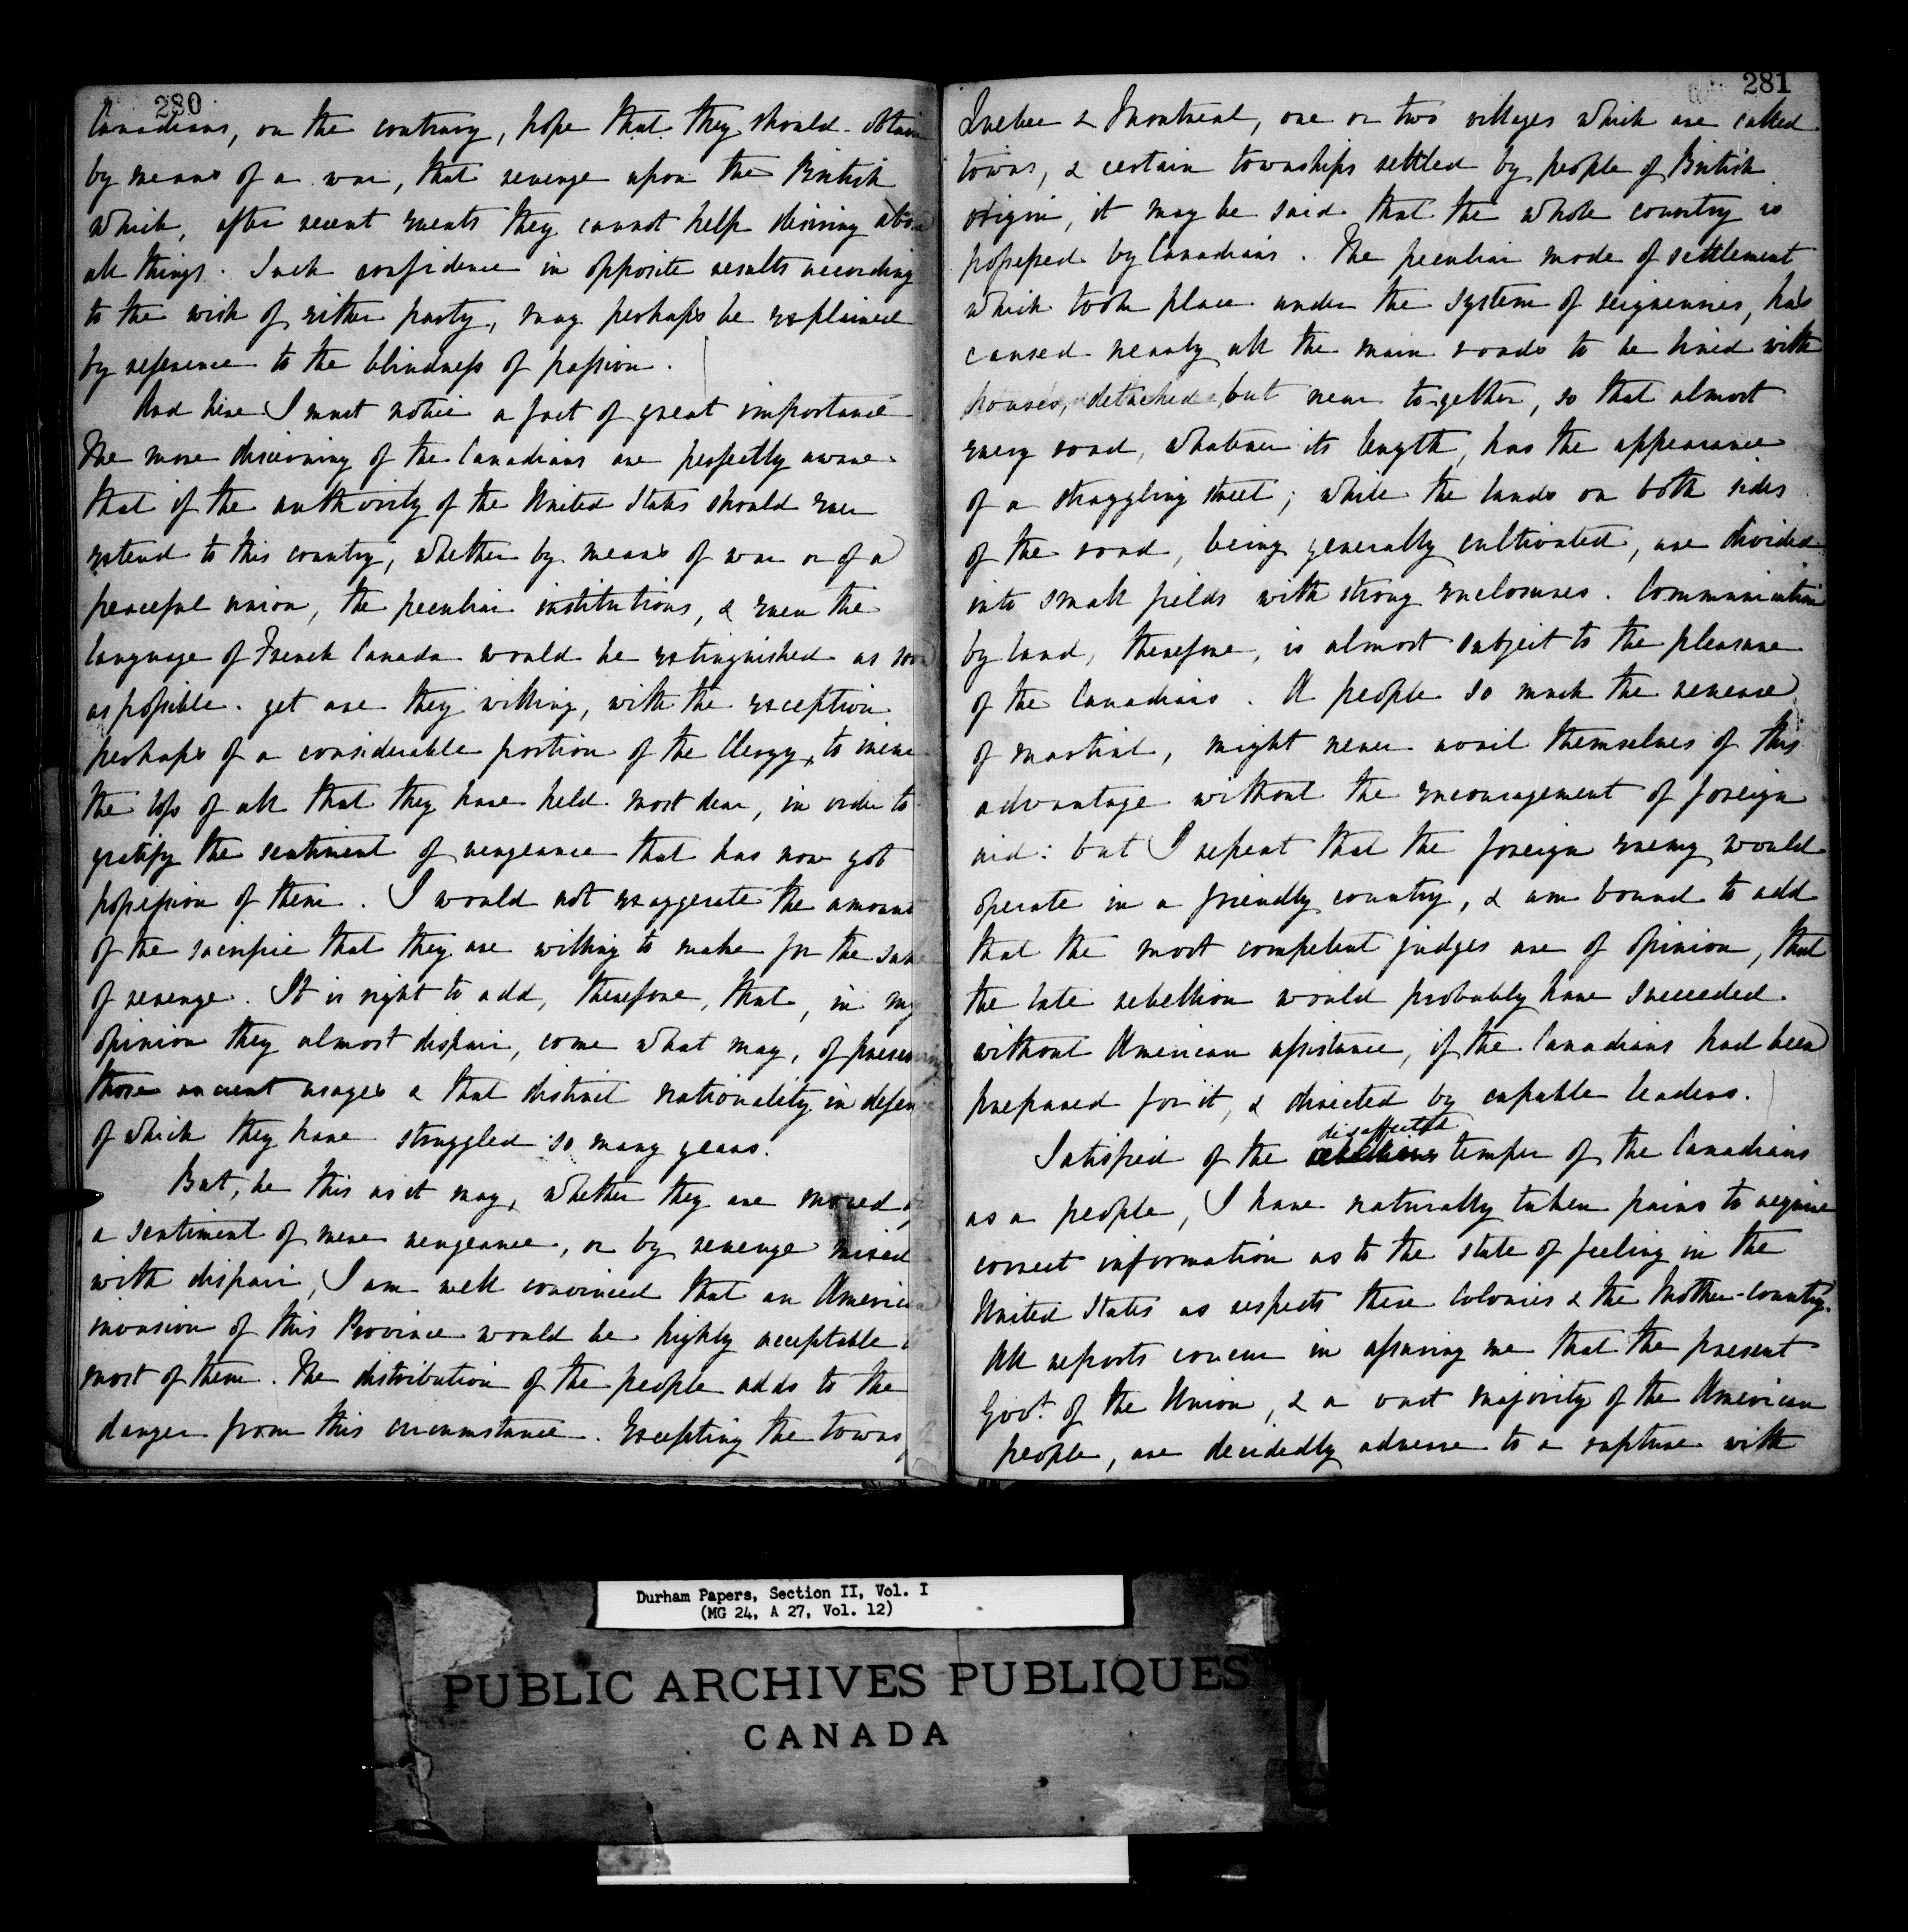 280
Canadians, on the contrary, hope that they should obtain
by means of a war, that revenge upon the British
which, after recent events they cannot help desiring above
all things. Such confidence in opposite results according
to the wish of either party, may perhaps be explained
by reference to the blindness of passion.
And here I must notice a fact of great importance
The more discerning of the Canadians are perfectly aware
that if the authority of the United States should ever
extend to this country, whether by means of war or of a
peaceful union, the peculiar institutions, & even the
language of French Canada would be extinguished as soon
as possible. yet are they willing, with the exception
perhaps of a considerable portion of the Clergy, to incur
the loss of all that they have held most dear, in order to
gratify the sentiment of vengeance that has now got
possession of them. I would not exaggerate the amount
of the sacrifice that they are willing to make for the sake
of revenge. It is right to add, therefore, that, in my
opinion they almost despair, come what may, of preserving
those ancient usages & that distinct nationality in defence
of which they have struggled so many years.
But, be this as it may, whether they are moved by
a sentiment of mere vengeance, or by revenge mixed
with despair, I am well convinced that an American
invasion of this Province would be highly acceptable to
most of them. The distribution of the people adds to the
danger from this circumstance. Excepting the towns
281
Quebec & Montreal, one or two villages which are called
towns, & certain townships settled by people of British
origin, it may be said that the whole country is
possessed by Canadians. The peculiar mode of settlement
which took place under the system of seigneuries, has
caused nearly all the main roads to be lined with
houses, detached, but near together, so that almost
every road, whatever its length, has the appearance
of a straggling street; while the lands on both sides
of the road, being generally cultivated, are divided
into small fields with strong enclosures. Communication
by land, therefore, is almost subject to the pleasure
of the Canadians. A people so much the reverse
of martial, might never avail themselves of this
advantage without the encouragement of foreign
aid: but I repeat that the foreign enemy would
operate in a friendly country, & am bound to add
that the most competent judges are of opinion, that
the late rebellion would probably have succeeded
without American assistance, if the Canadians had been
prepared for it, & directed by capable leaders.
disaffected
Satisfied of the rebellious temper of the Canadians
as a people, I have naturally taken pains to acquire
correct information as to the state of feeling in the
United States as respects these Colonies & the Mother-Country.
All reports concur in assuring me that the present
Govt. of the Union, & a vast majority of the American
people, are decidedly adverse to a rupture with
Durham Papers, Section II, Vol. I
(MG 24, A 27, Vol. 12)
PUBLIC ARCHIVES PUBLIQUES
CANADA